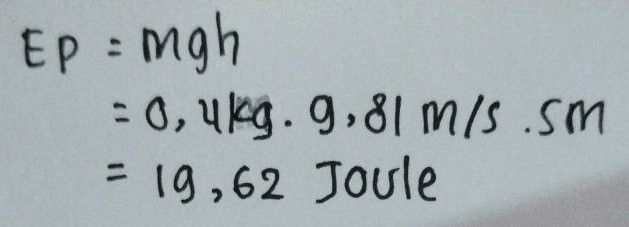 Ep = mgh
= 0,4kg. 9,81 m/s .5m
= 19,62 Joule